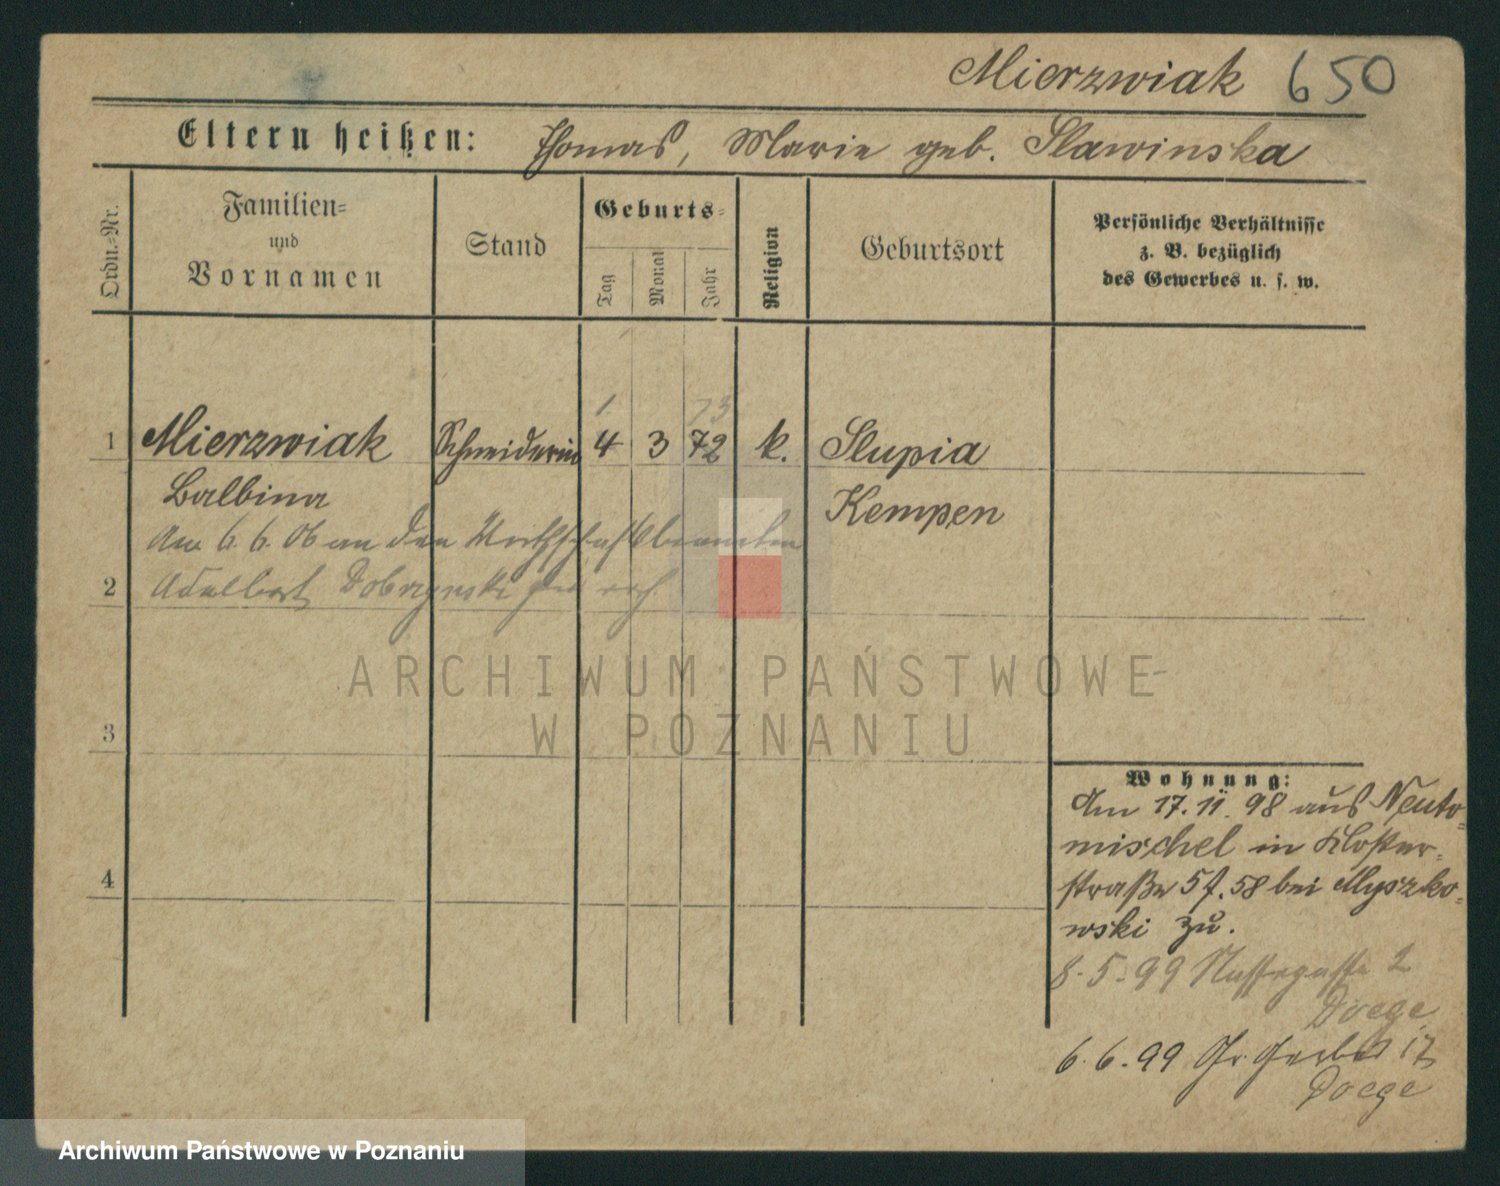 Mierzwiak 650
Eltern heißen: Thomas, Marie geb. Slawinska
Ordn.=Nr.
Familien=
und
Vornamen
Stand
Geburts=
Tag
Monat
Jahr
Religion
Geburtsort
Persönliche Verhältnisse
z. B. bezüglich
des Gewerbes u. s. w.
1 73
1 Mierzwiak Schneiderin 4 3 72 k. Slupia
Balbina Kempen
Am 6.6.06 an den Wirthschaftsbeamten
2 Adalbert Dobrzynski
ARCHIWUM PAŃSTWOWE
W POZNANIU
3
4
Wohnung:
Am 17.11.98 aus Neuto-
mischel in Kloster-
straße 57.58 bei Myszko-
wski zu.
8.5.99 Nassegasse 2
Doege
6.6.99 Gr. Gerber 17
Doege
Archiwum Państwowe w Poznaniu